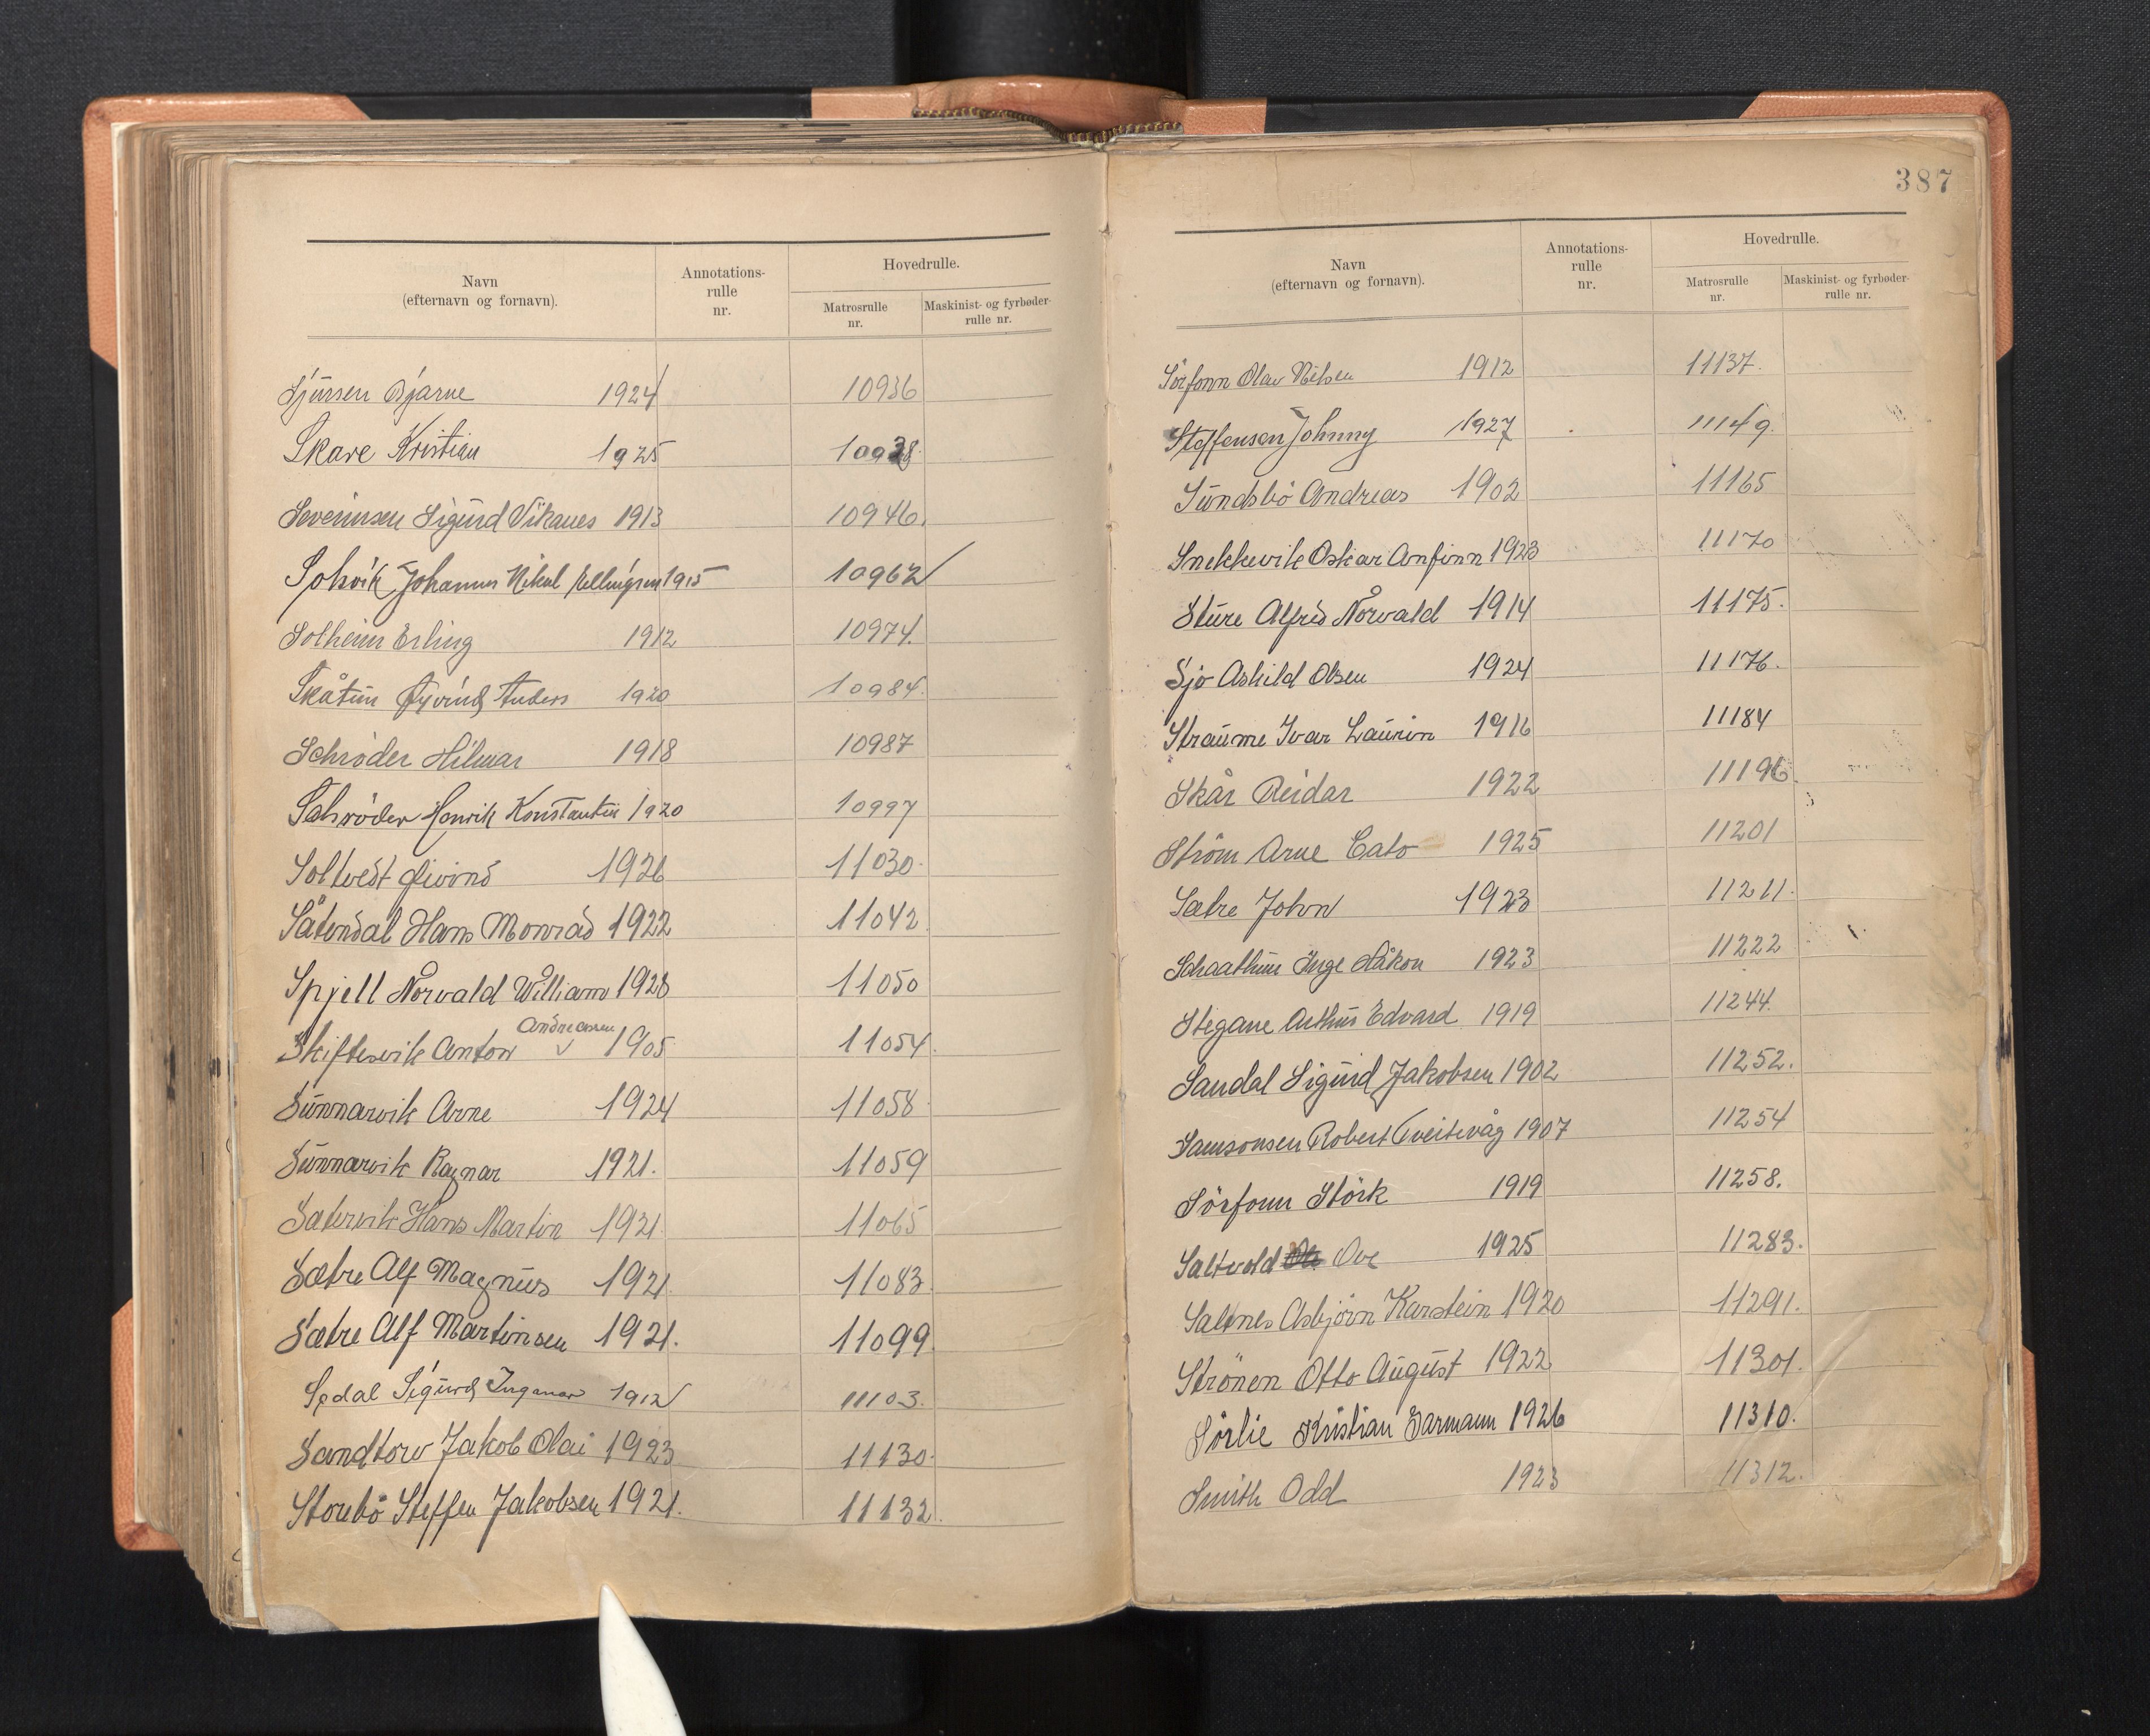 Navn
(efternavn og fornavn).
Annotations-
rulle
nr.
Hovedrulle.
Matrosrulle
nr.
Maskinist- og fyrbøder-
rulle nr.
Sjursen Bjarne 1924 10936
Skare Kristian 1925 10938.
Severinsen Sigurd Vikanes 1913 10946.
Johannes Nikal 1915 10962
Solheim Erling 1912 10974.
Skåtun Øyvind Anders 1920 10984.
Schrøder Hilmar 1918 10987
Schröder Henrik Konstantin 1920 10997
Soltvedt Eivind 1926 11030.
Såtendal Hans Monrad 1922 11042
Spjell Norvald William 1928 11050
Andreassen
Skiftesvik Anton v 1905 11054.
Sunnarvik Arne 1924 11058
Sunnarvik Ragnar 1921. 11059
Sætervik Hans Martin 1921 11065
Sætre Alf Magnus 1921 11083
Sætre Alf Martinsen 1921. 11099
Sædal Sigurd Ingemar 1912 11103.
Sandtorv Jakob Olai 1923 11130.
Storebö Steffen Jakobsen 1921. 11132.
387
Navn
(efternavn og fornavn).
Annotations-
rulle
nr.
Hovedrulle.
Matrosrulle
nr.
Maskinist- og fyrbøder-
rulle nr.
Sörfonn Olav Nilsen 1912 11137.
Steffensen Johnny 1927 11149.
Sundsbö Andreas 1902 11165
Snekkevik Oskar Arnfinn 1923 11170
Sture Alfred Norvald 1914 11175.
Sjo Askild Olsen 1924 11176.
Straume Ivar Laurin 1916 11184
Skår Reidar 1922 11196.
Ström Arne Cato 1925 11201
Sætre John 1923 11211.
Schaathun Inge Håkon 1923 11222
Stegane Arthur Edvard 1919 11244.
Sandal Sigurd Jakobsen 1902 11252.
Samsonsen Robert Tveitevåg 1907 11254
Sörfonn Störk 1919 11258.
Saltvold Ove 1925 11283.
Saltnes Asbjörn Karstein 1920 11291.
Strönen Otto August 1922 11301.
Sörlie Kristian Garmann 1926 11310.
Smith Odd 1923 11312.